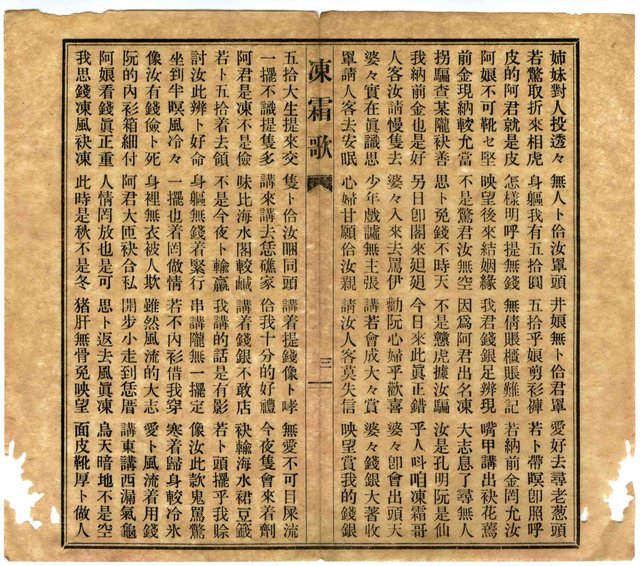 姊妹對人投透々 無人卜佮汝罩頭 井娘無卜佮君罩 愛好去尋老葱頭
若驚取折來相虎 身軀我有五拾圓 五拾乎娘剪衫褲 若卜帶暝卽照呼
皮的阿君就是皮 怎樣明呼提無錢 無倩賬櫃賬難記 若納前金罔允汝
阿娘不可靴セ堅 映望後來結姻緣 我君錢銀足辨現 嘴甲講出袂花蔫
前金現納較允當 不是驚君汝無空 因爲阿君出名凍 大志息了尋無人
拐騙查某隴袂善 思卜免錢不時天 不是戇虎據汝騙 汝是孔明阮是仙
我納前金也是好 另日卽閣來廻廻 今日來此眞正錯 乎人叫咱凍霜哥
人客汝請慢隻去 婆々入來去罵伊 勸阮心婦乎歡喜 婆々卽會出頭天
婆々實在眞識思 少年戲謔無主張 講若會成大々賞 婆々錢銀大著收
罩請人客去安眠 心婦甘願佮汝親 請汝人客莫失信 映望賞我的錢銀
凍霜歌 三
五拾大生提來交 隻卜佮汝睏同頭 講着提錢像卜哮 無愛不可目屎流
一擺不識提隻多 講來講去恁礁家 佮我十分的好禮 今夜隻會來着劑
阿君是凍不是儉 味比海水閣較鹹 講着錢銀不敢店 袂輸海水裙豆籤
若卜五拾着去領 不是今夜卜輸贏 我講的話是有影 若卜頭擺乎我賒
討汝此辨卜好命 身軀無錢着緊行 串講隴無一擺定 像汝此款鬼罵驚
坐到半暝風冷々 一擺也着罔做情 若不內衫借我穿 寒着歸身較冷氷
像汝有錢儉卜死 身裡無衣被人欺 雖然風流的大志 愛卜風流着用錢
阮的內衫箱細付 阿君大匝袂合私 開步小走到恁厝 講東講西漏氣龜
阿娘看錢眞正重 人情罔放也是可 思卜返去風眞凍 烏天暗地不是空
我思錢凍風袂凍 此時是秋不是冬 猪肝無骨免映望 面皮靴厚卜做人